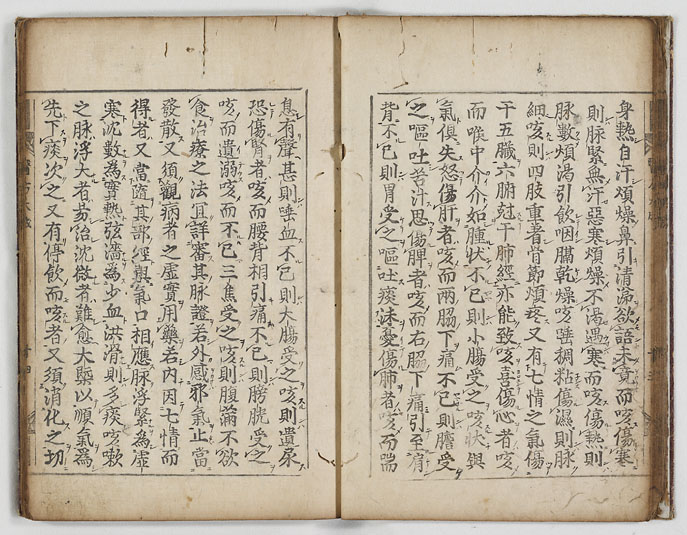 身熱自汗煩燥鼻引清涕欲語未竟而咳傷寒
則脉緊無汗惡寒煩燥不渴遇寒而咳傷熱則
脉數煩渴引飲咽膈乾燥咳唾稠粘傷濕則脉
細咳則四肢重著骨節煩疼又有七情之氣傷
干五臟六腑冦干肺經亦能致咳喜傷心者咳
而喉中介介如腫狀不已則小腸受之咳狀與
氣俱失怒傷肝者咳而兩脇下痛不已則膽受
之嘔吐苦汁思傷脾者咳而右脇下痛引至肩
背不已則胃受之嘔吐痰沫憂傷肺者咳而喘
息有聲甚則唾血不已則大腸受之咳則遺尿
恐傷腎者咳而腰背相引痛不已則膀胱受之
咳而遺溺咳而不已三焦受之咳則腹滿不欲
食治療之法冝詳審其脉證若外感邪氣止當
發散又須觀病者之虛實用藥若内因七情而
得者又當隨其部經與氣口相應脉浮緊為虛
寒沈數為實熱弦濇為少血洪滑則多痰咳嗽
之脉浮大者易治沈微者難愈大槩以順氣為
先下痰次之又有停飲而咳者又須消化之切